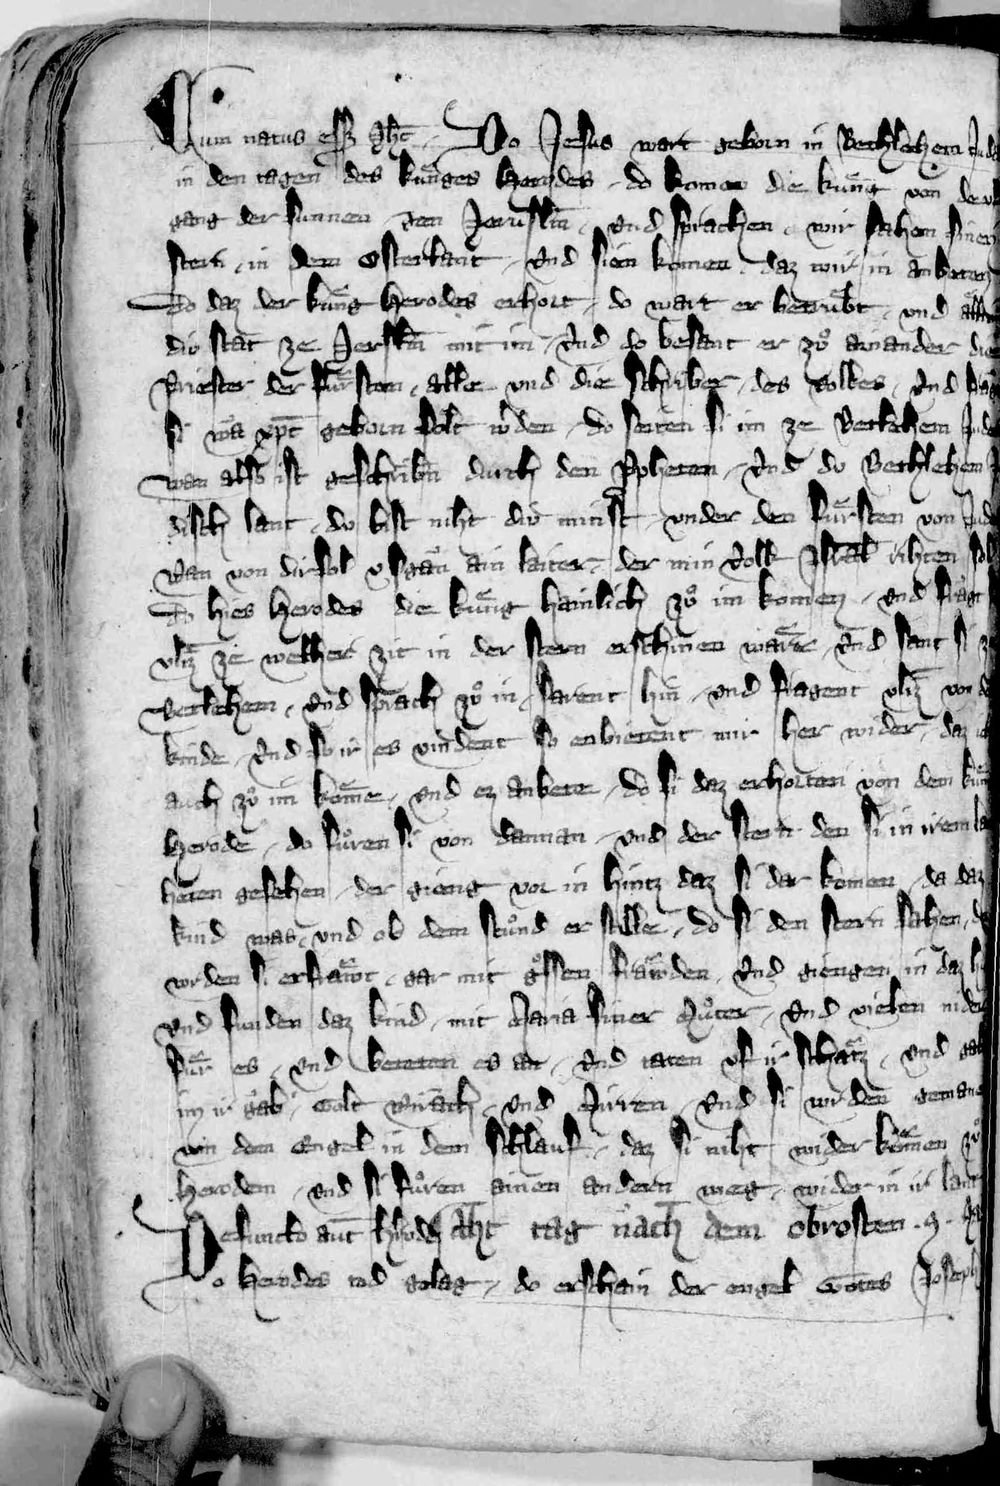 Cum natus esset Jhc̄. Do Jesus wart geborn in Bethlehem
in den tagen des kuͤnges Herodes, do komen die kuͤng von der
gang der sunnen, gen Jeruslm̄, vnd sprachen, wir sahem sinen
stern, in dem Osterlant, vnd sien komen, daz wir in anbetten
Do daz der kuͤng Herodes erhort, do wart er betruͤbt, vnd
diͮ stat ze Jerslm̄ mit im, vnd do besant er zuͦ ainander die
Priester der fuͤrsten, alle vnd die schriber, des volkes, vnd
si wa xp̄c geborn solt wͤden, do seiten si im ze Betlehem
wan also ist geschribn̄ durch den Ppheten, vnd du Bethlehem
disch lant, du bist niht diͮ minst, vnder den fuͤrsten von
Wan von dir sol vsgan ain laiter, der min volk Jsrāl rihten
Do hies Herodes die kuͤng hainlich zuͦ im komen, vnd fragt
vliz̄ ze welher zit in der stern erschinen waͤre, vnd sant si
Betlehem, vnd sprach zuͦ in, farent hin, vnd fragent vliz̄ von
kinde, vnd so ir es vindent so enbietent mir her wider, daz
auch zuͦ im kome, vnd ez anbete, do si daz erhorten von dem
Herode, do fuͦren si von dannan, vnd der stern den si in irem
heten gesehen, der gieng vor in hintz daz si dar komen, da daz
kind was, vnd ob dem stuͦnd er stille, do si den stern sahen,
wrden si erfraͤwt, gar mit gossen fraͤwden, vnd giengen in daz
vnd funden daz kind, mit Maria siner Muͦter, vnd vielen nider
fuͤr es, vnd betten es an, vnd taten vf ir schaͤtz, vnd
im ir gab, Golt Wirach, vnd Mirren, vnd si wrden
von dem Engel in dem schlauf, daz si niht wider komen zuͦ
Herodem, vnd si fuͦren ainen andern weg, wider in ir lant
Defuncto aut̄ Hrode Aht tag nach dem obrosten
Do Herodes tod gelag, do erschain der engel Gottes Joseph